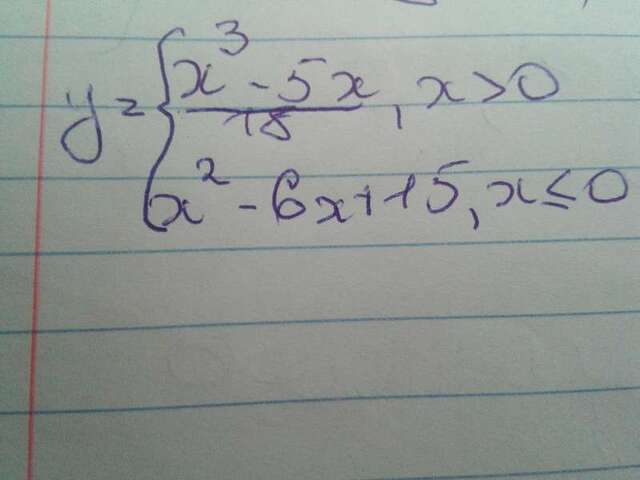 y = { x³ - 5x / 18, x > 0
x² - 6x + 15, x ≤ 0